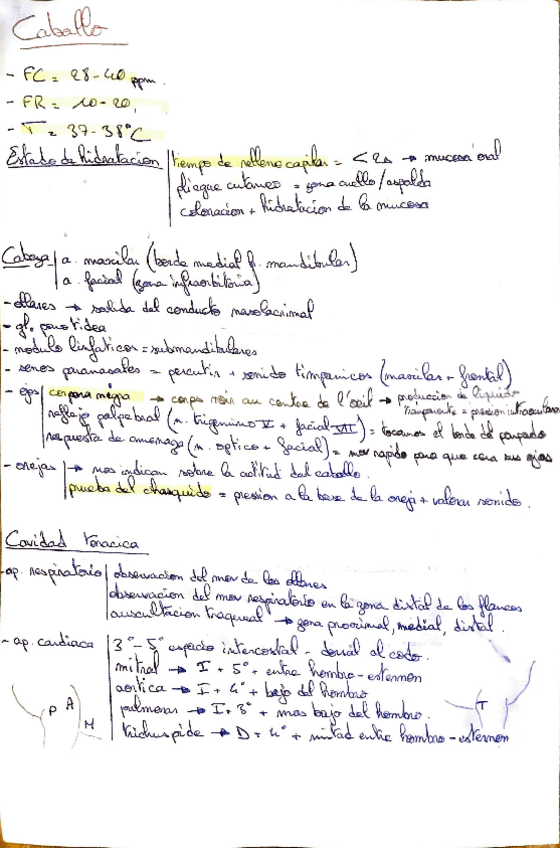 Caballo
- FC = 28-40 ppm.
- FR = 10-20,
- T = 37-38°C
Estado de hidratacion | tiempo de relleno capilar = < 2s → mucosa oral
pliegue cutaneo = zona cuello/espalda
coloracion + hidratacion de la mucosa
Cabeza | a. maxilar (borde medial f. mandibular)
a. facial (zona infraorbitoria)
- ollares → salida del conducto nasolacrimal
- gl. parotidea
- nodulo linfaticos = submandibulares
- senos paranasales = percutir + sonido timpanicos (maxilar - frontal)
- ojos | corpora nigra → corps noir au centre de l'oeil → produccion de liquido
transparente = presion intraocular
reflejo palpebral (n. trigemino V + facial VII) = tocamos el borde del parpado
respuesta de amenaza (n. optico + facial) = mov rapido para que cierra sus ojos
- orejas | → nos indican sobre la actitud del caballo.
prueba del chasquido = pression a la base de la oreja + valorar sonido.
Cavidad toracica
- ap. respiratorio | observacion del mov de los ollares
observacion del mov respiratorio en la zona distal de los flancos
auscultacion traqueal → zona proximal, medial, distal.
- ap. cardiaca | 3°-5° espacio intercostal - dorsal al codo.
mitral → I + 5° + entre hombro-esternon
aortica → I + 4° + bajo del hombro
pulmonar → I + 3° + mas bajo del hombro.
trichuspide → D + 4° + mitad entre hombro-esternon
P A M
T